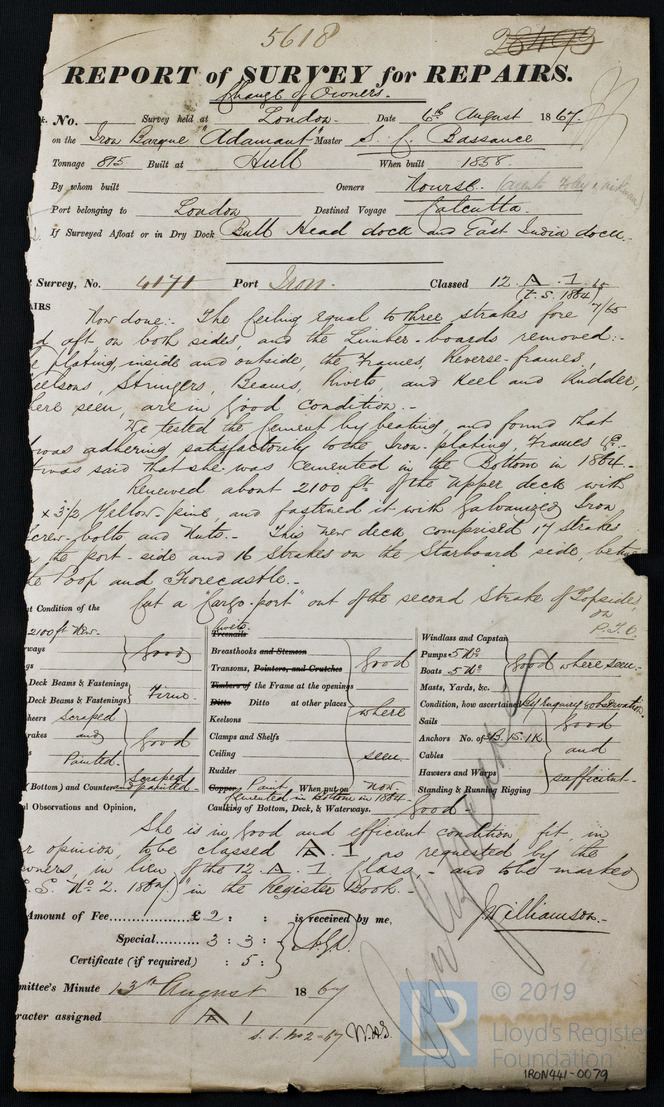 5618
REPORT of SURVEY for REPAIRS.
Change of Owners.
No. Survey held at London. Date 6th August 1867.
on the Iron Barque "Adamant" Master S. C. Bassance
Tonnage 815 Built at Hull When built 1858.
By whom built Owners Nourse.
Port belonging to London Destined Voyage Calcutta.
If Surveyed Afloat or in Dry Dock Bull Head dock and East India dock.
Survey, No. 4171 Port Iron. Classed 12 A. 1.
(t. S. 1864) 7/65
AIRS
Now done:- The Ceiling equal to three strakes fore
d aft on both sides, and the Limber-boards removed:-
e plating, inside and outside, the Frames, Reverse-frames,
eelsons, Stringers, Beams, Rivets, and Keel and Rudder,
here seen, are in good condition.-
We tested the Cement by beating, and found that
was adhering satisfactorily to the Iron-plating Frames &c.-
twas said that she was Cemented in the Bottom in 1864.-
Renewed about 2100 ft. of the upper deck with
x 3 1/2 Yellow-pine and fastened it with Galvanized Iron
crew-bolts and Nuts.- This new deck comprised 17 strakes
the port-side and 16 strakes on the Starboard side, betw
he Poop and Forecastle.-
Cut a "Cargo-port" out of the second Strake of Topsides
on
P.T.O.
nt Condition of the
2100 ft New.
ways
gs
Good
Deck Beams & Fastenings
Deck Beams & Fastenings
Firm.
heers Scraped
rakes and
s Painted.
Good
Bottom) and Counter Scraped and painted.
Rivets.
Treenails
Breasthooks and Stemson
Transoms, Pointers, and Crutches
Timbers of the Frame at the openings
Ditto Ditto at other places
Keelsons
Clamps and Shelfs
Ceiling
Rudder
Good
where
seen.
Copper, Paint When put on Now.
Cemented in Bottom in 1864.
Caulking of Bottom, Deck, & Waterways. Good
Windlass and Capstan
Pumps 5 No.
Boats 5 No.
Masts, Yards, &c.
Good where seen.
Condition, how ascertained By Enquiry & observation
Sails
Anchors No. of 3B. 1S. 1K
Cables
Hawsers and Warps
Standing & Running Rigging
Good
and
sufficient.
l Observations and Opinion,
She is in good and efficient condition fit, in
r opinion, to be classed A. 1 as requested by the
owners, in lieu of the 12. A. 1 Class,- and to be marked
S. No. 2. in the Register Book.-
Amount of Fee £ 2 : : is received by me,
Special 3 : 3 :
Certificate (if required) : 5 :
J Williamson.
mittee's Minute 13th August 1867
racter assigned A 1
S.S. No 2-67
© 2019
LR
Lloyd's Register
Foundation
IRON441-0079